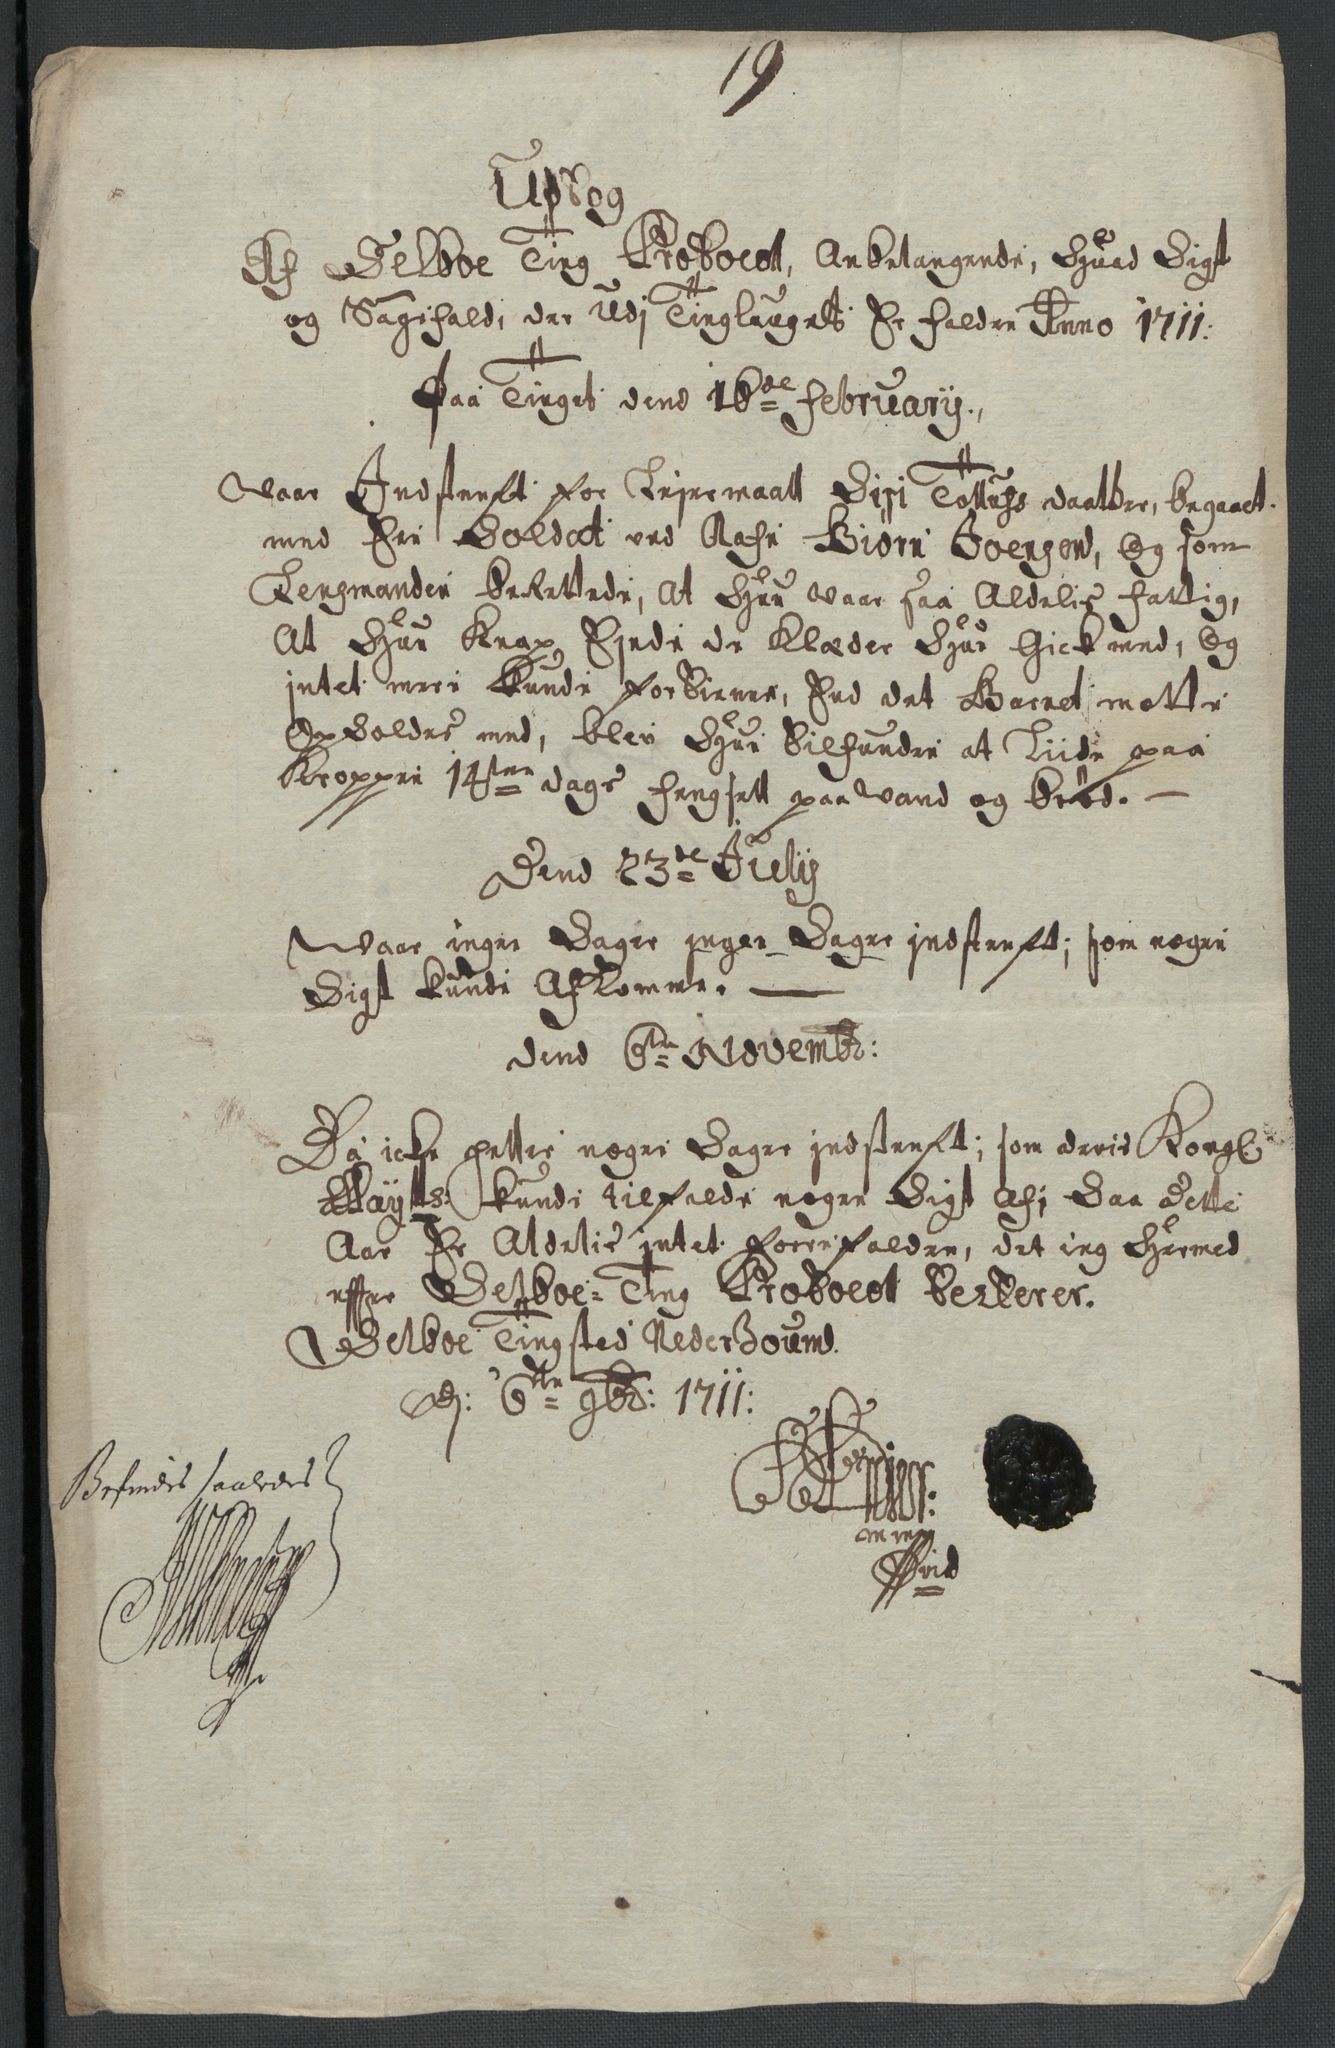 19
Udtog
Af Selboe Ting Protocol, Anbelangende, Hvad Sigt
og Sagefald, der Udj Tinglauget Er falden Anno 1711:
Paa Tinget dend 16de February.,
Waar Indstenft for Leyermaall Sisi Tolluchs daatter, begaaet
med Een Soldat ved Nafn Biörn Joensen, Og som
Lensmanden berettede, at Hun waar saa Aldelis fattig,
At Hun Knap Eyede de Klæder Hun Gick med, Og
intet mere kunde fortienne, End det Barnet motte
Opholdes med, blev Hun tilfunden at Liide paa
Kroppen 14ten dags fengsell paa wand og bröd. —
Dend 23de July
Waar ingen Sager ingen Sager indstenft; som nogen
Sigt kunde Afkomme. —
dend 6te Novembr:
Da icke heller nogen Sager indstenft; som deris Kongl
Mayts: kunde tilfalde nogen Sigt Af; Saa Dette
Aar Er Aldelis intet foreefalden, det ieg Hermed
effter Selboe Ting Protocol bekrefter.
Selboe Tingsted Nederhoumd.
dj: 6te 9br: 1711:
Befindes saaledes
mppria